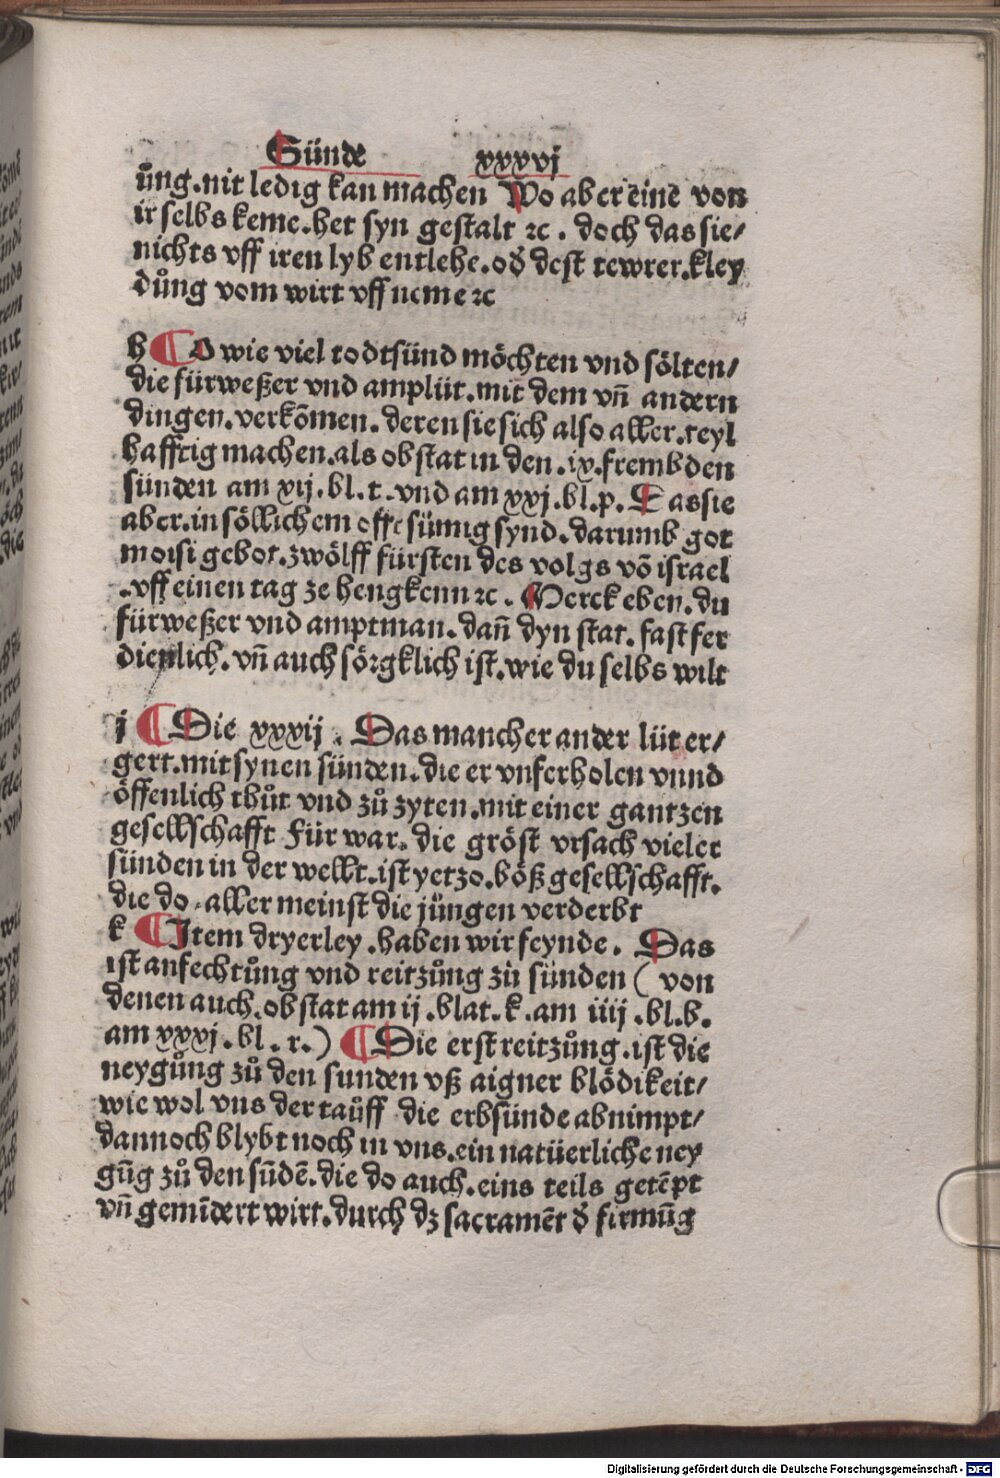 Sünde xxxvj
ůng.nit ledig kan machen Wo aber eine von
ir selbs keme.het syn gestalt ꝛc . doch das sie/
nichts vff iren lyb entlehe.oď dest tewrer.kley
důng vom wirt vff neme ꝛc
h O wie viel todtsünd möchten vnd sölten/
die fürweßer vnd amplüt.mit dem vn̄ andern
dingen.verkōmen.deren sie sich also aller.teyl
hafftig machen.als ob stat in den.ix.frembden
sünden am xij.bl.t.vnd am xxj.bl.p. Das sie
aber.in söllichem offt sümig synd.darumb got
moisi gebot.zwölff fürsten des volgs vō israel
.vff einen tag ze hengkenn ꝛc . Merck eben.du
fürweßer vnd amptman.dan̄ dyn stat.fast fer
dienlich.vn̄ auch sörgklich ist.wie du selbs wilt
i Die xxxij . Das mancher ander lüt er/
gert.mit synen sünden.die er vnferholen vnnd
öffenlich thůt vnd zů zyten.mit einer gantzen
gesellschafft Für war.die gröst vrsach vieler
sünden in der wellt.ist yetzo.böß gesellschafft.
die do.aller meinst die jüngen verderbt
k Item dryerley.haben wir feynde. Das
ist anfechtůng vnd reitzůng zů sünden ( von
denen auch.ob stat am ij.blat.k.am iiij.bl.b.
am xxxj.bl.r.) Die erst reitzůng.ist die
neygůng zů den sunden vß aigner blödikeit/
wie wol vns der tauff die erbsünde abnimpt/
dannoch blybt noch in vns.ein natüerliche ney
gūg zů den sündē.die do auch.eins teils getēpt
vn̄ gemīdert wirt.durch dz sacramēt ď firmūg
Digitalisierung gefördert durch die Deutsche Forschungsgemeinschaft - DFG